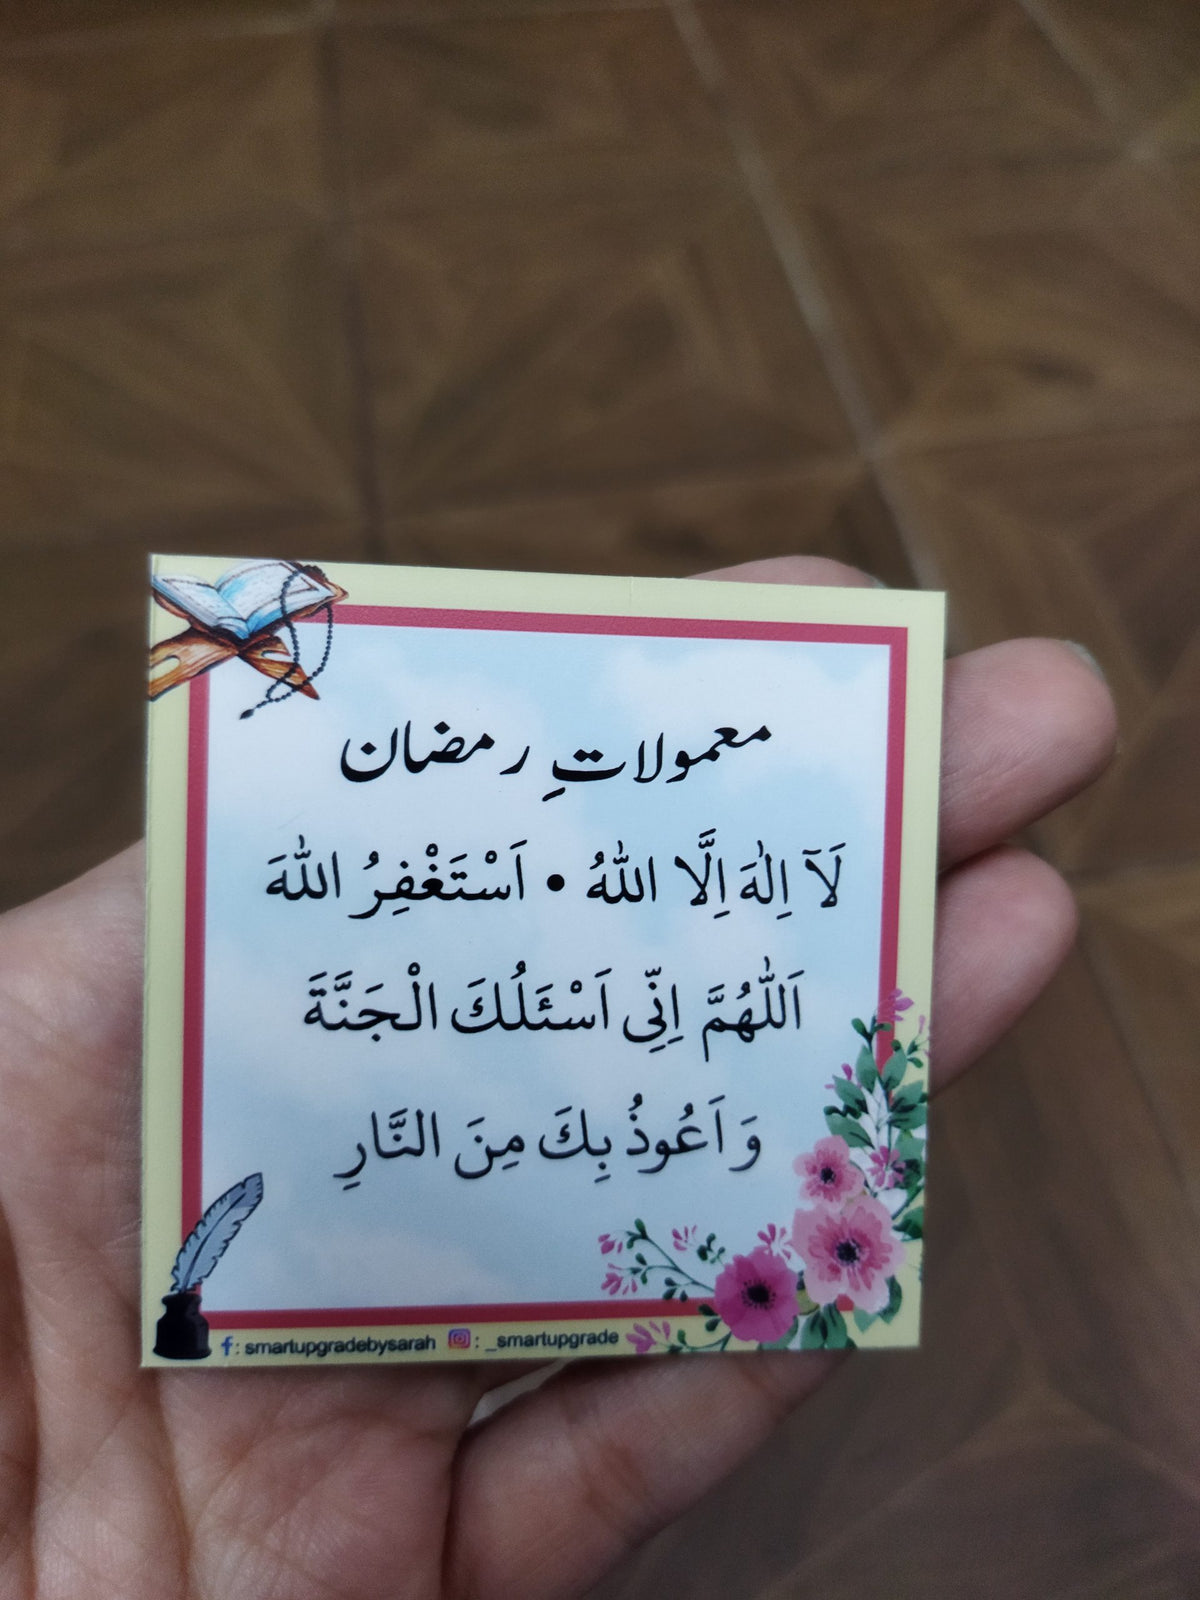 معمولاتِ رمضان
لَآ اِلٰهَ اِلَّا اللّٰهُ • اَسْتَغْفِرُ اللّٰهَ
اَللّٰهُمَّ اِنِّی اَسْئَلُكَ الْجَنَّةَ
وَ اَعُوذُ بِكَ مِنَ النَّارِ
f: smartupgradebysarah : _smartupgrade